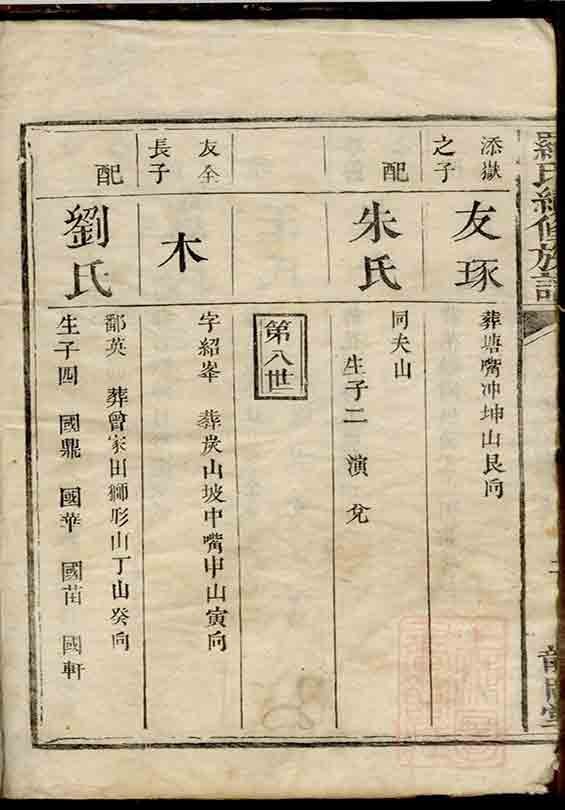 羅氏續修族譜
添嶽
之子
友琢
葬塘嘴冲坤山艮向
配
朱氏
同夫山
生子二 演 兌
第八世
友全
長子
木
字紹峯 葬炭山坡中嘴申山寅向
配
劉氏
鄒英 葬曾家田獅形山丁山癸向
生子四 國鼎 國華 國苗 國軒